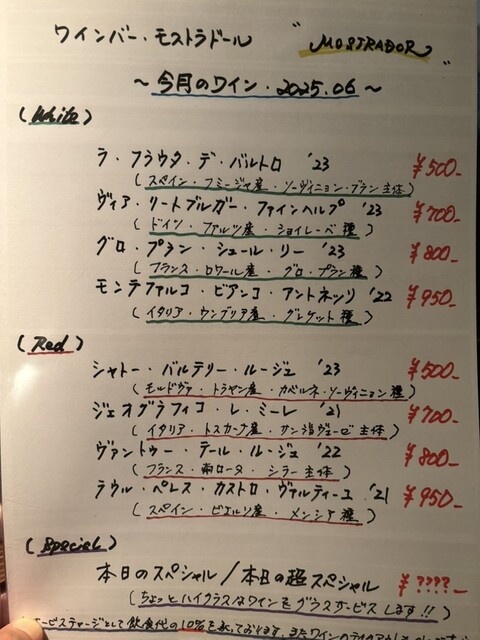 ワインバー・モストラドール "MOSTRADOR"
～今月のワイン・2025.06～
(White)
ラ・フラウタ・デ・バルトロ '23 ¥500-
(スペイン・フミージャ産・ソーヴィニョン・ブラン主体)
ヴィア・リートブルガー・ファインヘルプ '23 ¥700-
(ドイツ・ファルツ産・ショイレーベ種)
グロ・プラン・シュール・リー '23 ¥800-
(フランス・ロワール産・グロ・プラン種)
モンテファルコ・ビアンコ・アントネッリ '22 ¥950-
(イタリア・ウンブリア産・グレケット種)
(Red)
シャトー・バルテリー・ルージュ '23 ¥500-
(モルドヴァ・トラヤン産・カベルネ・ソーヴィニョン種)
ジェオグラフィコ・レ・ミーレ '21 ¥700-
(イタリア・トスカーナ産・サンジョヴェーゼ主体)
ヴァントゥー・テール・ルージュ '22 ¥800-
(フランス・南ローヌ・シラー主体)
ラウル・ペレス・カストロ・ヴァルティーユ '21 ¥950-
(スペイン・ビエルソ産・メンシア種)
(Special)
本日のスペシャル/本日の超スペシャル ¥????-
(ちょっとハイクラスなワインをグラスサービスします!!)
サービスチャージとして飲食代の10%を承っております。またワインのテイクアウト